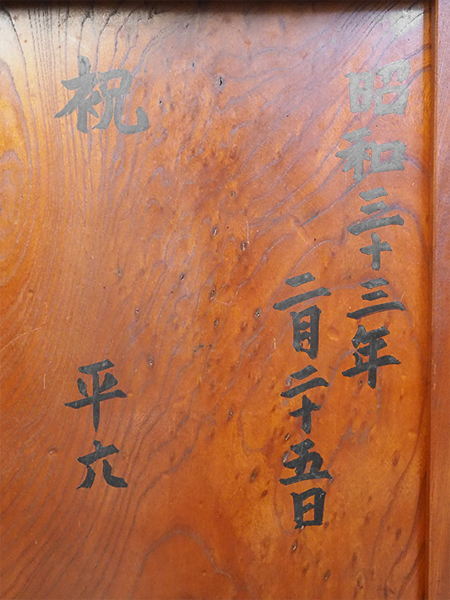 昭和三十三年
二月二十五日
祝
平六